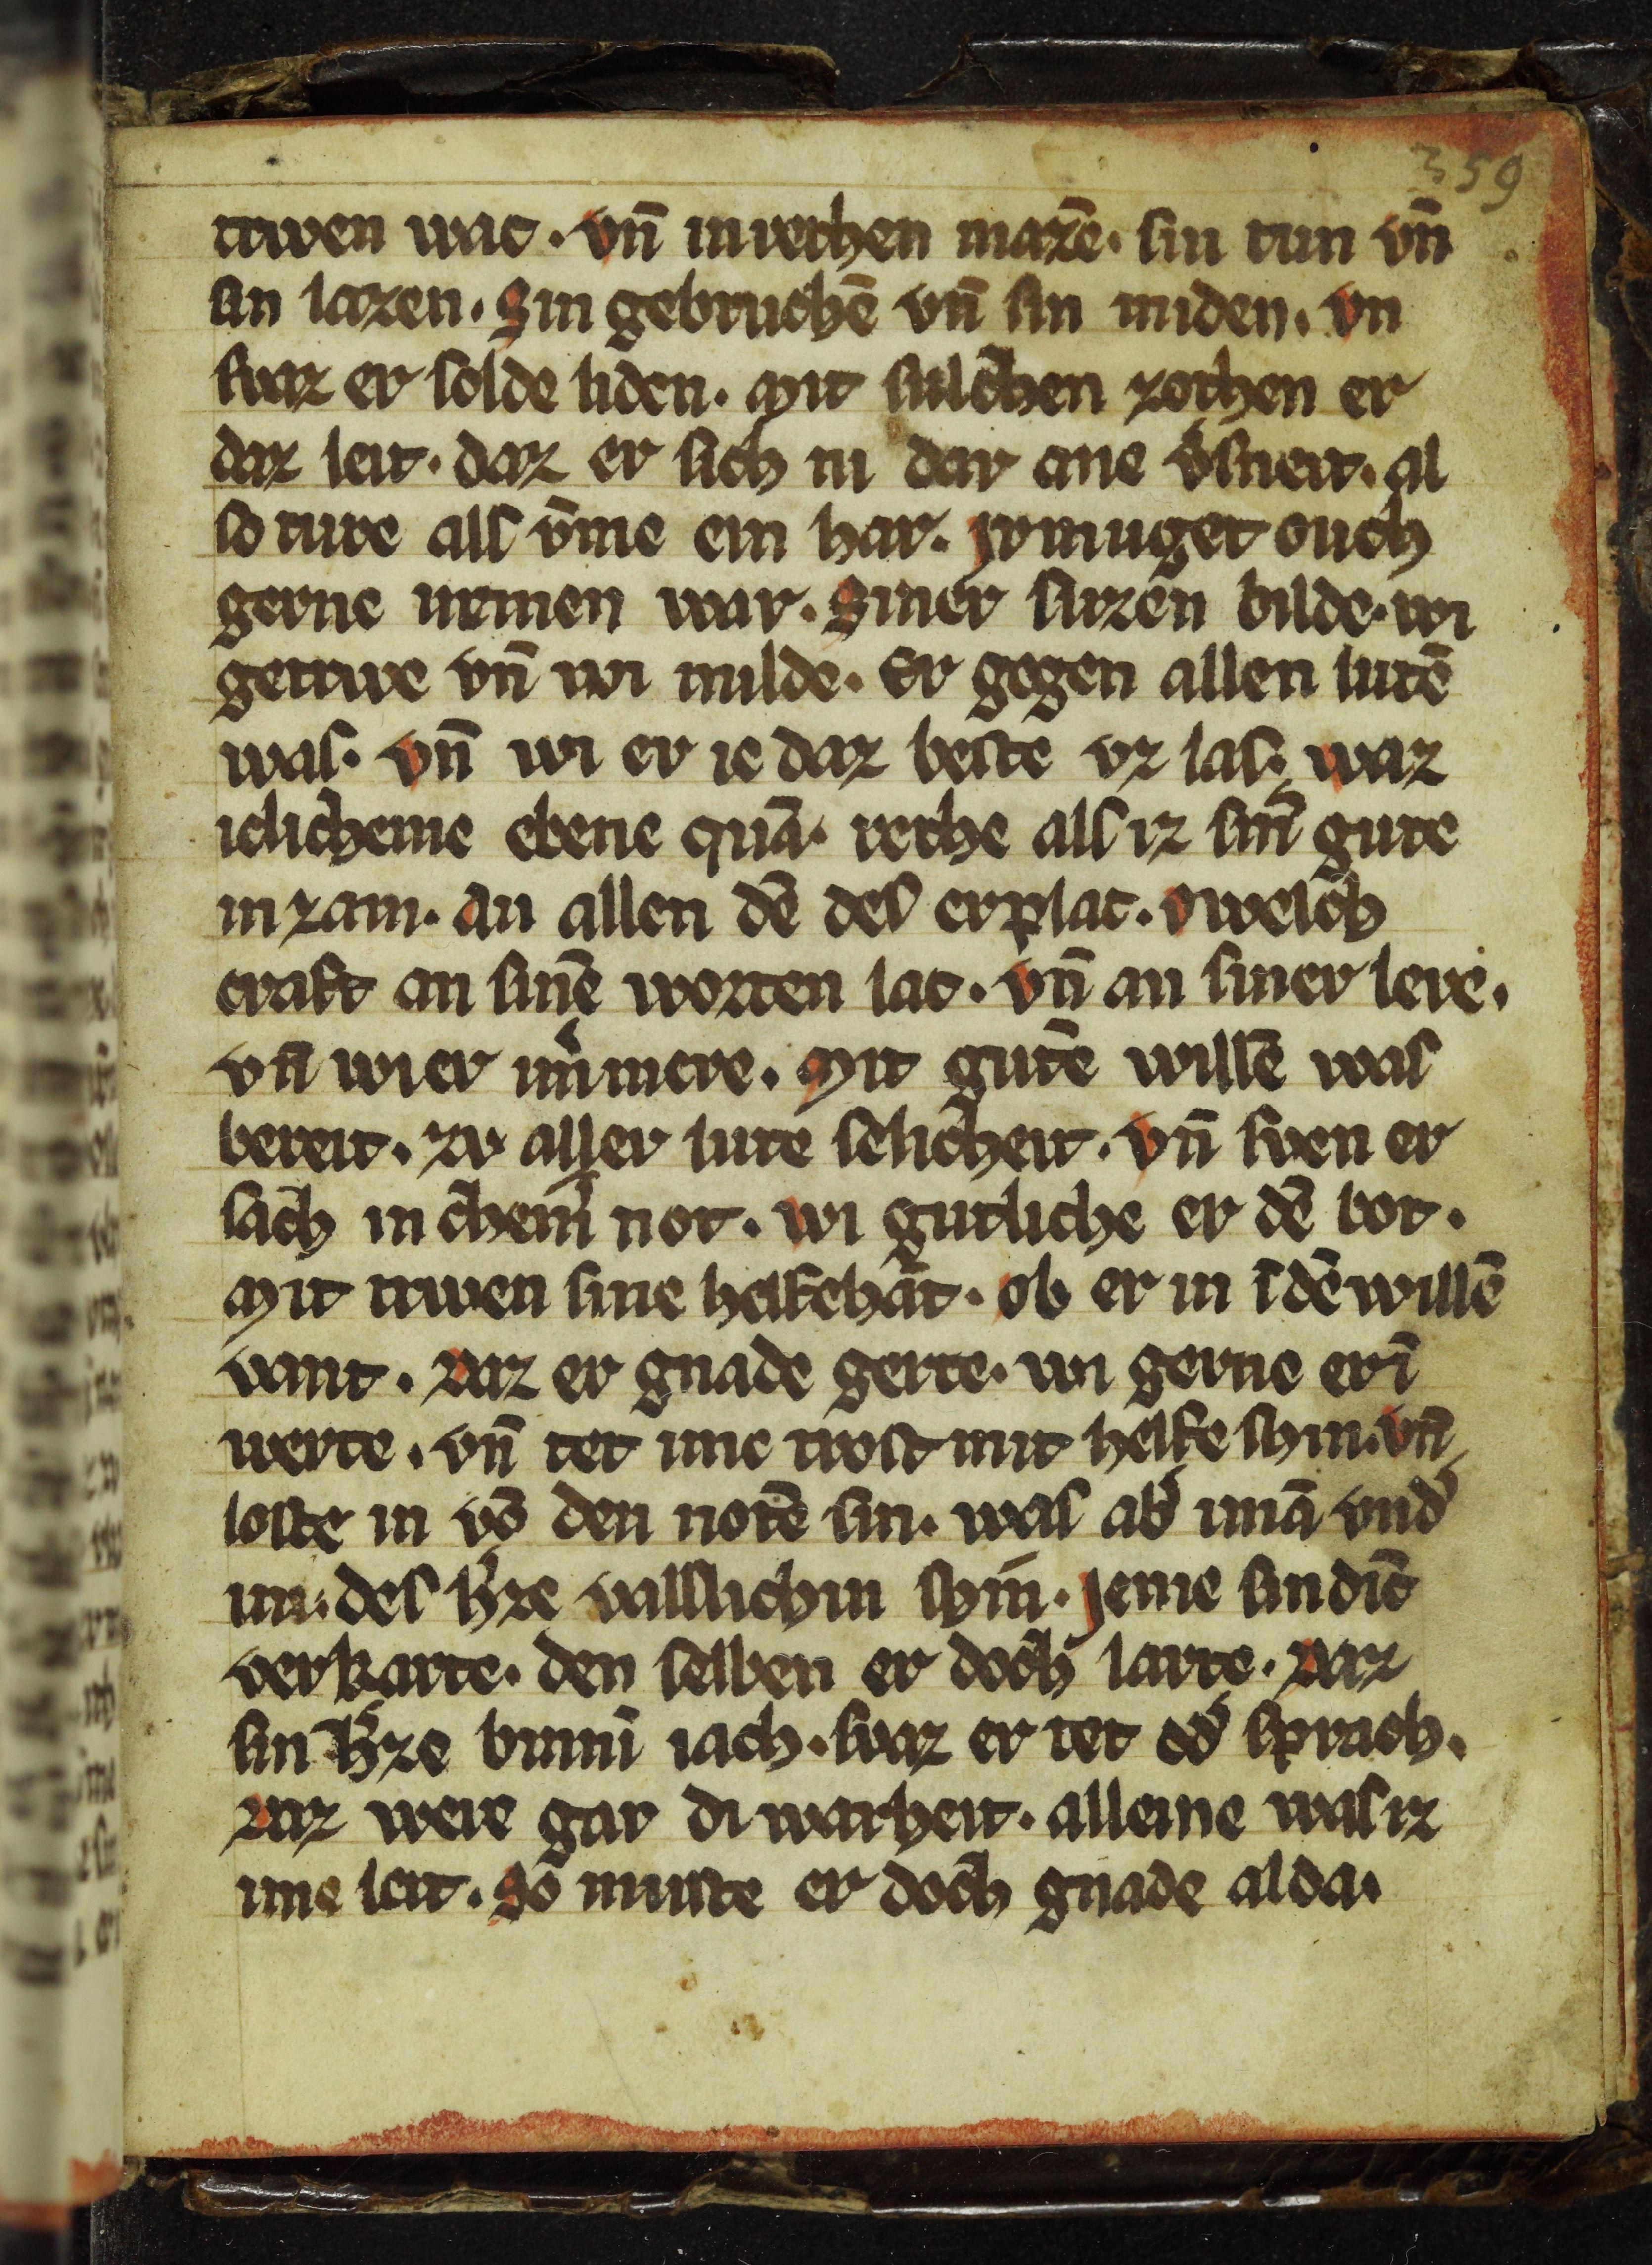 359
truwen wac. vn̄ in rethen mazē. sin tun vn̄
sin lazen. Sin gebruchē vn̄ sin miden. vn
swaz er solde liden. Mit sulchen zothen er
daz leit. daz er sich ni dar ane v̓sneit. al
so ture als vm̄e ein har. Ir muget ouch
gerne nemen war. Siner suzen bilde. wi
getruwe vn̄ wi milde. Er gegen allen lutē
was. vn̄ wi er ie daz beste vz las. waz
iclicheme ebene quā. rethe als iz sin̄ gute
in zam. An allen dē des er plac. Swelch
craft an sinē worten lac. vn̄ an siner lere.
vn̄ wi er im̓mere. Mit gutē willē was
bereit. zv aller lute selicheit. vn̄ swen er
sach in chem̓ not. wi gutliche er dē bot.
Mit truwen sine helfehāt. ob er in ī dē willē
vant. Daz er gnade gerte. wi gerne er ī
werte. vn̄ tet ime trost mit helfe schin. vn̄
loste in vō den notē sin. was ab̓ imā vnd̓
in. des h̓ze valslichin schin̄. Jeme sin dīc
verkarte. den selben er doch larte. Daz
sin h̓ze binnī iach. swaz er tet od̓ sprach.
Daz were gar di warheit. alleine was iz
ime leit. So muste er doch gnade alda.